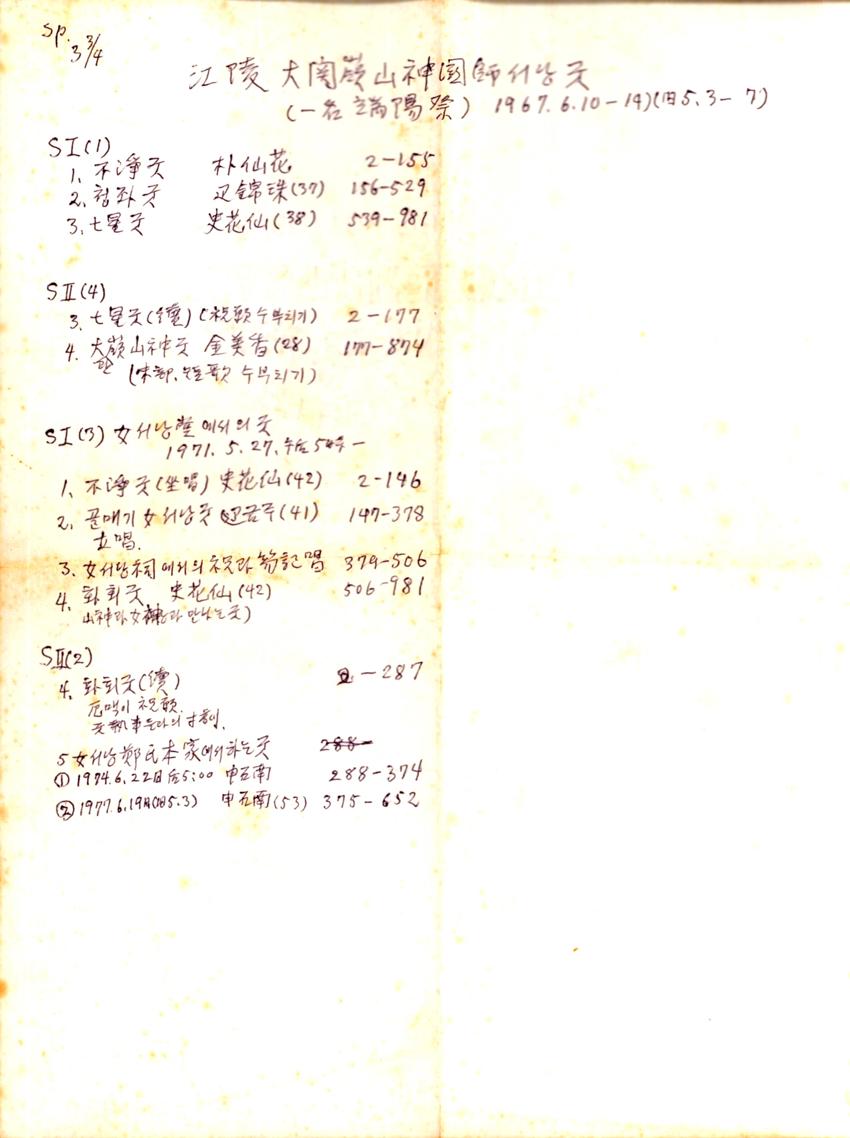 Sp. 3 3/4
江陵 大關嶺山神國師서낭굿
(一名 端陽祭) 1967. 6. 10-14)(旧5. 3- 7)
SI(1)
1. 不淨굿 朴仙花 2-155
2. 청좌굿 辺錦珠(37) 156-529
3. 七星굿 史花仙(38) 539-981
SII(4)
3. 七星굿(續) (祝願 수부치기) 2-177
4. 大嶺山神굿 金美香(28) 177-874
(短歌 수부치기)
SI(3) 女서낭堂에서의 굿
1971. 5. 27.
1. 不淨굿(坐唱) 史花仙(42) 2-146
2. 골매기 女서낭굿 辺금주(41) 147-378
立唱.
3. 女서낭祠에서의 379-506
4. 화회굿 史花仙(42) 506-981
山神과 만나는굿)
SII(2)
4. 화회굿(續) 2-287
厄맥이 祝願.
5 女서낭鄭氏本家에서하는굿 288-
① 1974. 6. 22日 后5:00 申石南 288-374
② 1977. 6. 19日(旧5.3) 申石南(53) 375-652